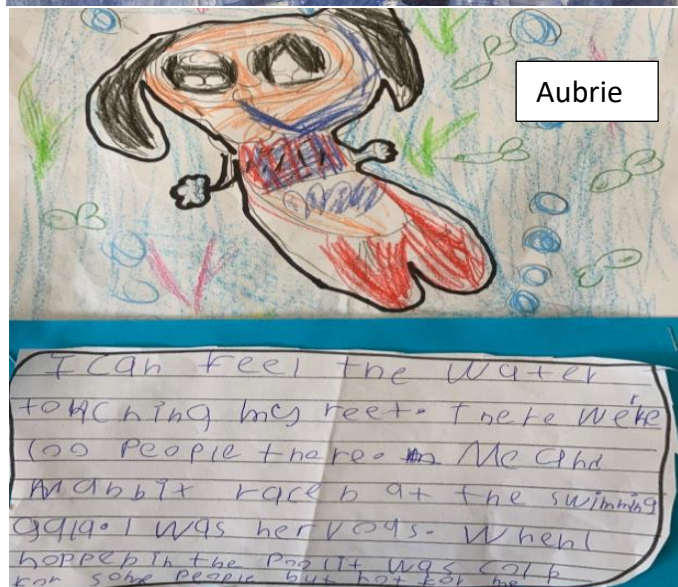 Aubrie
I can feel the water
touching my feet. There were
100 people there. Me and
race at the swimming
gala. I was nervous. When I
hopped in the pool it was cold
for some people but not for me